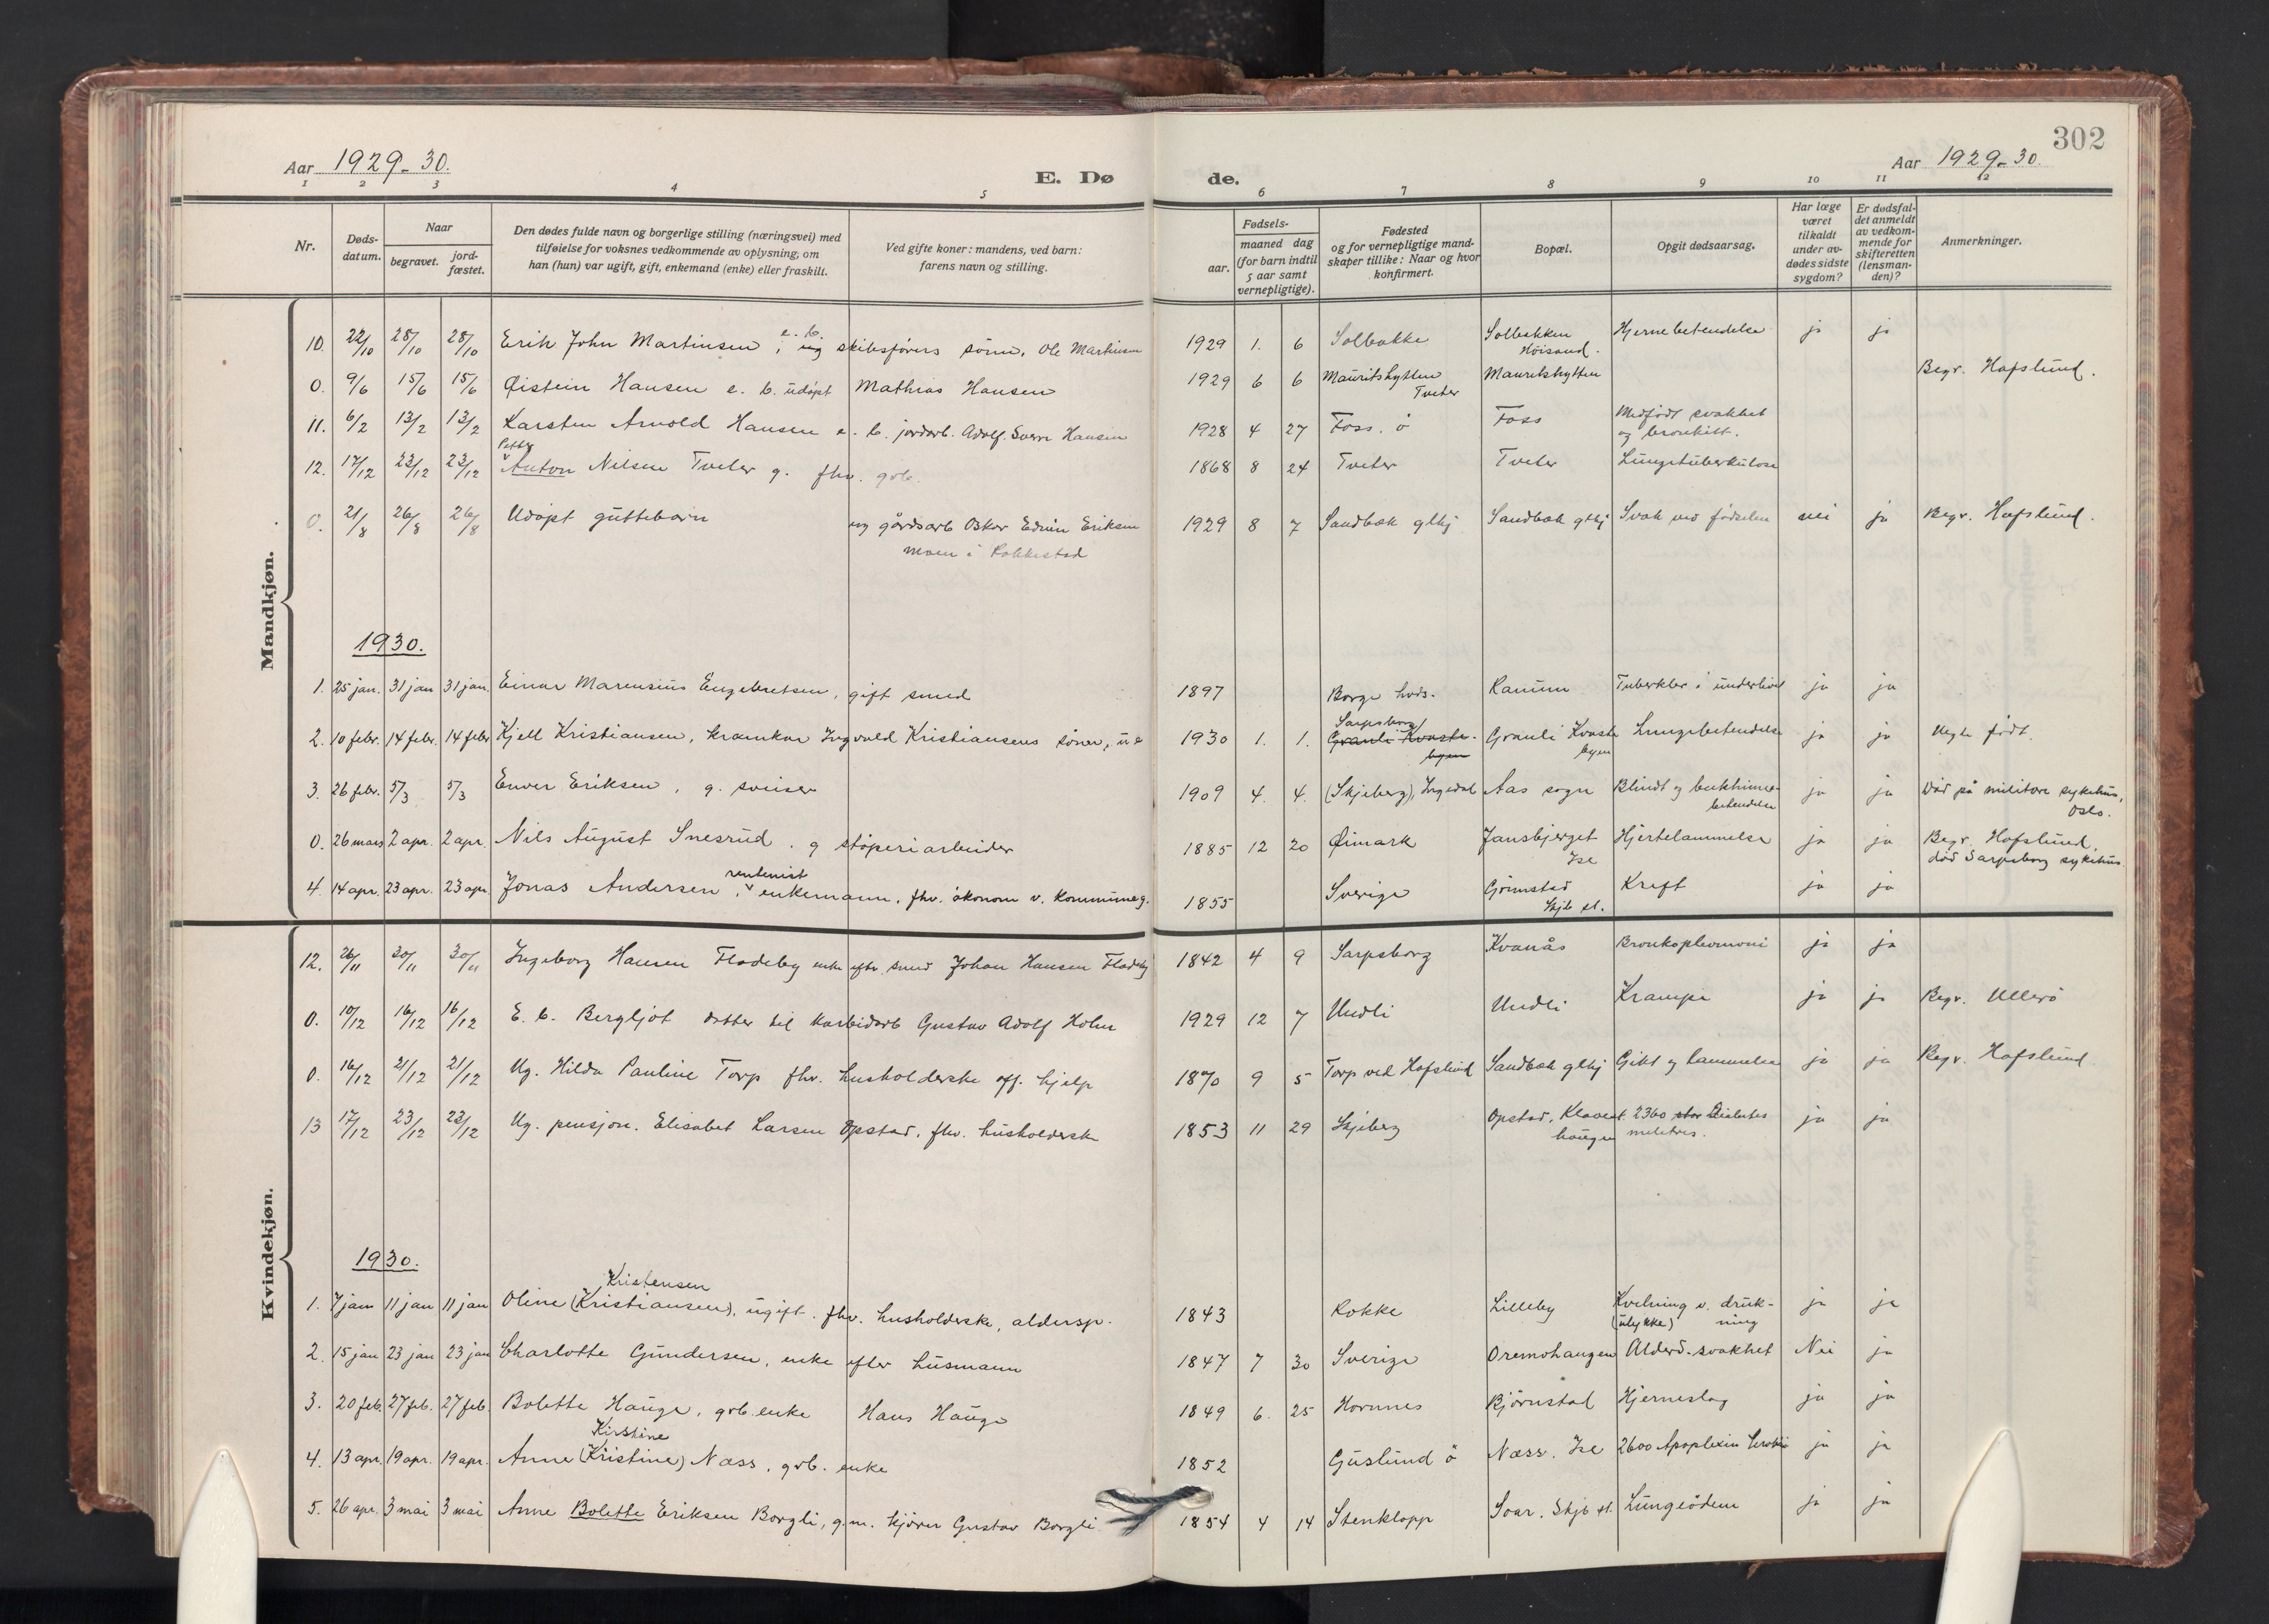 302
Aar 1929-30.
E. Dø
de.
Aar 1929-30.
1 2 3 4 5 6 7 8 9 10 11 12
Nr.
Døds-
datum.
Naar
begravet.
jord-
fæstet.
Den dødes fulde navn og borgerlige stilling (næringsvei) med
tilføielse for voksnes vedkommende av oplysning, om
han (hun) var ugift, gift, enkemand (enke) eller fraskilt.
Ved gifte koner: mandens, ved barn:
farens navn og stilling.
Fødsels-
aar.
maaned dag
(for barn indtil
5 aar samt
vernepligtige).
Fødested
og for vernepligtige mand-
skaper tillike: Naar og hvor
konfirmert.
Bopæl.
Opgit dødsaarsag.
Har læge
været
tilkaldt
under av-
dødes sidste
sygdom?
Er dødsfal-
det anmeldt
av vedkom-
mende for
skifteretten
(lensman-
den)?
Anmerkninger.
Mandkjøn.
10. 22/10 28/10 28/10 Erik John Martinsen, e. b. ug skibsførers sønn, Ole Martinsen 1929 1. 6 Solbakke Solbakken Høisand. Hjernebetendelse ja ja
0. 9/6 15/6 15/6 Øistein Hansen e. b. udøpt Mathias Hansen 1929 6 6 Mauritshytten Tveter Mauritshytten Begr. Hafslund.
11. 6/2 13/2 13/2 Karsten Arnold Hansen e. b. jordarb. Adolf Sverre Hansen 1928 4 27 Foss. ö Foss Medfødt svakhet og bronkitt.
12. 17/12 23/12 23/12 Petter Anton Nilsen Tveter g. fhv. grb. 1868 8 24 Tveter Tveter Lungetuberkulose
0. 21/8 26/8 26/8 Udøpt guttebarn ug gårdsarb Oskar Edvin Eriksen 1929 8 7 Sandbæk glhj Sandbæk glhj Svak ved fødselen nei ja Begr. Hafslund.
Moen i Rakkestad
1930.
1. 25 jan. 31 jan 31 jan. Einar Marensius Engebretsen, gift smed 1897 Borge hvds. Kanum Tuberkler i underlivet ja ja
2. 10 febr. 14 febr. 14 febr Kjell Kristiansen, kramkar Ingvald Kristiansens sønn, u e 1930 1. 1. Sarpsborg Granli Kvastebyen Granli Kvastebyen Lungebetendelse ja ja Uegte født.
3. 26 febr. 5/3 5/3 Enver Eriksen, g. sveiser 1909 4. 4. (Skjeberg), Ingedal Aas sogn Blindt og bukhinnebetendelse ja ja Død på militære sykehus, Oslo.
0. 26 mars 2 apr. 2 apr. Nils August Snesrud. g støperiarbeider 1885 12 20 Øimark Jansbjerget Ise Hjertelammelse ja ja Begr. Hafslund. død Sarpsborg sykehus.
4. 14 apr. 23 apr. 23 apr Jonas Andersen, rentenist enkemann, fhv. økonom v. kommuneg. 1855 Sverige Grimstad Skjb st. Kreft ja ja
Kvindekjøn.
12. 26/11 30/11 30/11 Ingeborg Hansen Fladeby enke efter smed Johan Hansen Fladeby 1842 4 9 Sarpsborg Kvanås Bronkopleomoni ja ja
0. 10/12 16/12 16/12 E. b. Bergljot datter til karbidarb Gustav Adolf Holm 1929 12 7 Undli Undli Krampe ja ja Begr. Ullerö
0. 16/12 21/12 21/12 Ug. Hilda Pauline Torp fhv. husholderske off. hjelp 1870 9 5 Torp ved Hafslund Sandbæk glhj Gikt og lammelse ja ja Begr. Hafslund
13 17/12 23/12 23/12 Ug. pensjon. Elisabet Larsen Opstad, fhv. husholderske 1853 11 29 Skjeberg Opstad, Klavesthaugen 2360 stor Diabetes melitus. ja ja
1930.
1. 7 jan 11 jan 11 jan Oline (Kristiansen) Kristensen, ugift. fhv. husholderske, aldersp. 1843 Rokke Lilleby Kvelning v. drukning (ulykke) ja ja
2. 15 jan 23 jan 23 jan Charlotte Gundersen, enke efter husmann 1847 7 30 Sverige Oremohaugen Alderd. svakhet Nei ja
3. 20 feb. 27 feb. 27 feb. Bolette Hauge, grb.enke Hans Hauge 1849 6. 25 Hornnes Bjørnstad Hjerneslag ja ja
4. 13 apr. 19 apr. 19 apr. Anne (Kristine) Kirstine Næss, grb. enke 1852 Guslund ö Næss. Ise 2600 Apoplexia cerebri ja ja
5. 26 apr. 3 mai 3 mai Anne Bolette Eriksen Borgli, g.m. kjører Gustav Borgli 1854 4 14 Stenklopp Soar. Skjb st. Lungeödem ja ja